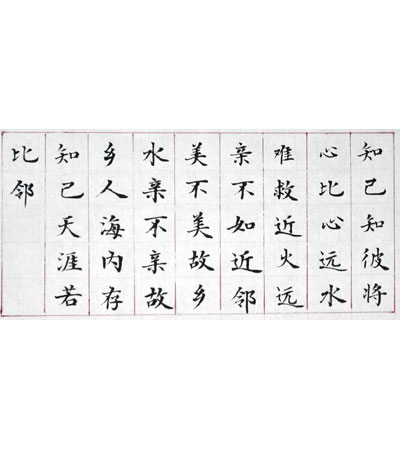 知己知彼将
心比心远水
难救近火远
亲不如近邻
美不美故乡
水亲不亲故
乡人海内存
知己天涯若
比邻